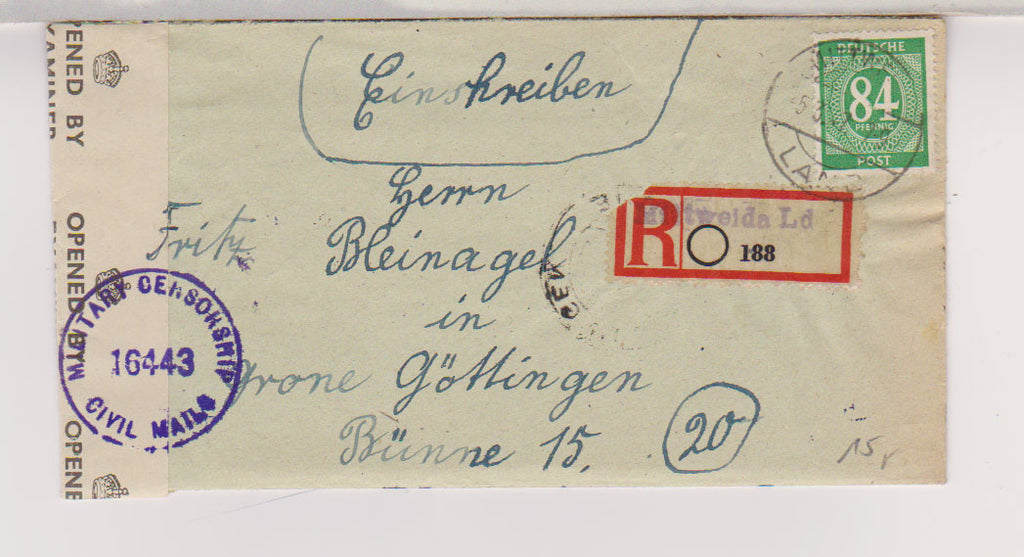 OPENED BY
OPENED BY
MILITARY CENSORSHIP
16443
CIVIL MAILS
Einschreiben
DEUTSCHE
84
PFENNIG
POST
LAND
Herrn
Fritz Bleinagel
in
Grone Göttingen
Bünne 15.
20
R
Mittweida Ld
188
15